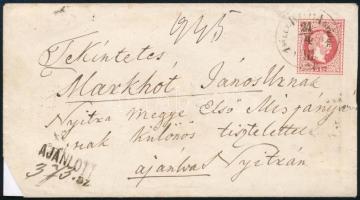 945
Tekintetes
Markhót János Urnak
Nyitra megye Első Alispánjá
nak különös tisztelettel
ajánlva Nyitrán
AJÁNLOTT